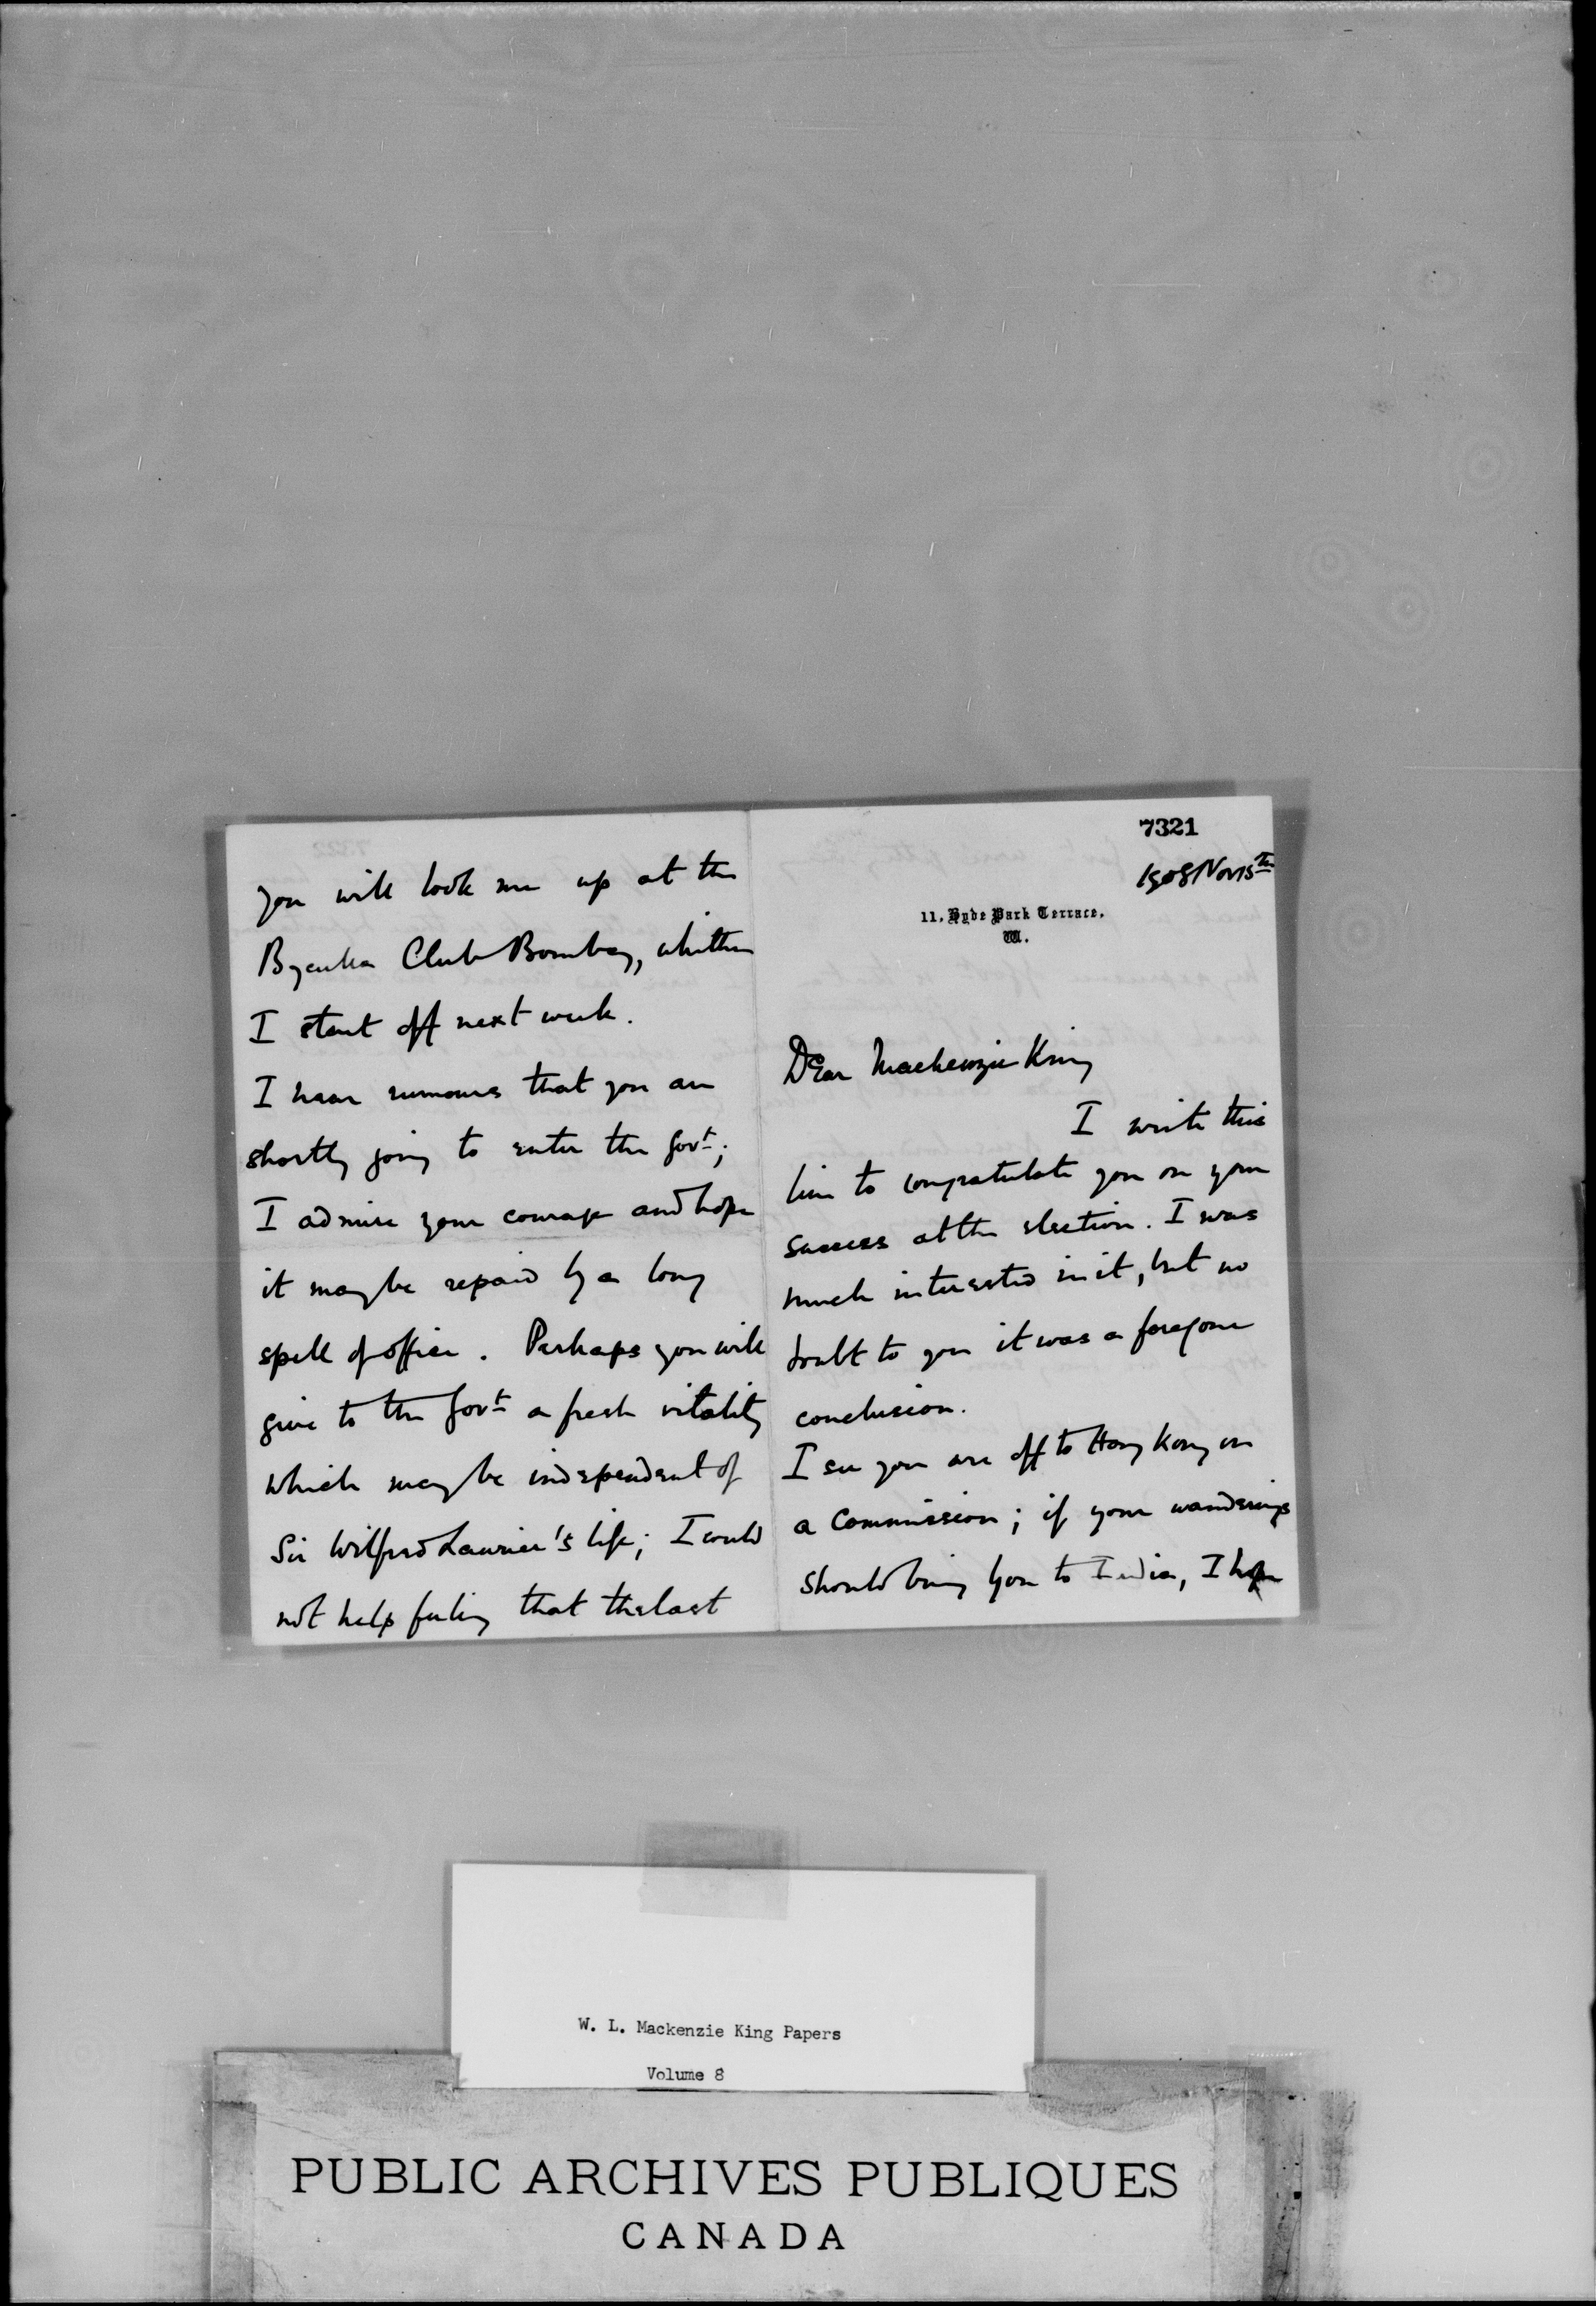 7321
1908 Nov 15th
11, Hyde Park Terrace,
W.
Dear Mackenzie King
I write this
line to congratulate you on your
success at the election. I was
much interested in it, but no
doubt to you it was a foregone
conclusion.
I see you are off to Hong Kong on
a Commission; if your wanderings
should bring you to India, I hope
you will look me up at the
Byculla Club Bombay, whither
I start off next week.
I hear rumours that you are
shortly going to enter the Govt;
I admire your courage and hope
it may be repaid by a long
spell of office. Perhaps you will
give to the Govt a fresh vitality
which may be independent of
Sir Wilfred Laurier's life; I could
not help feeling that the last
W. L. Mackenzie King Papers
Volume 8
PUBLIC ARCHIVES PUBLIQUES
CANADA